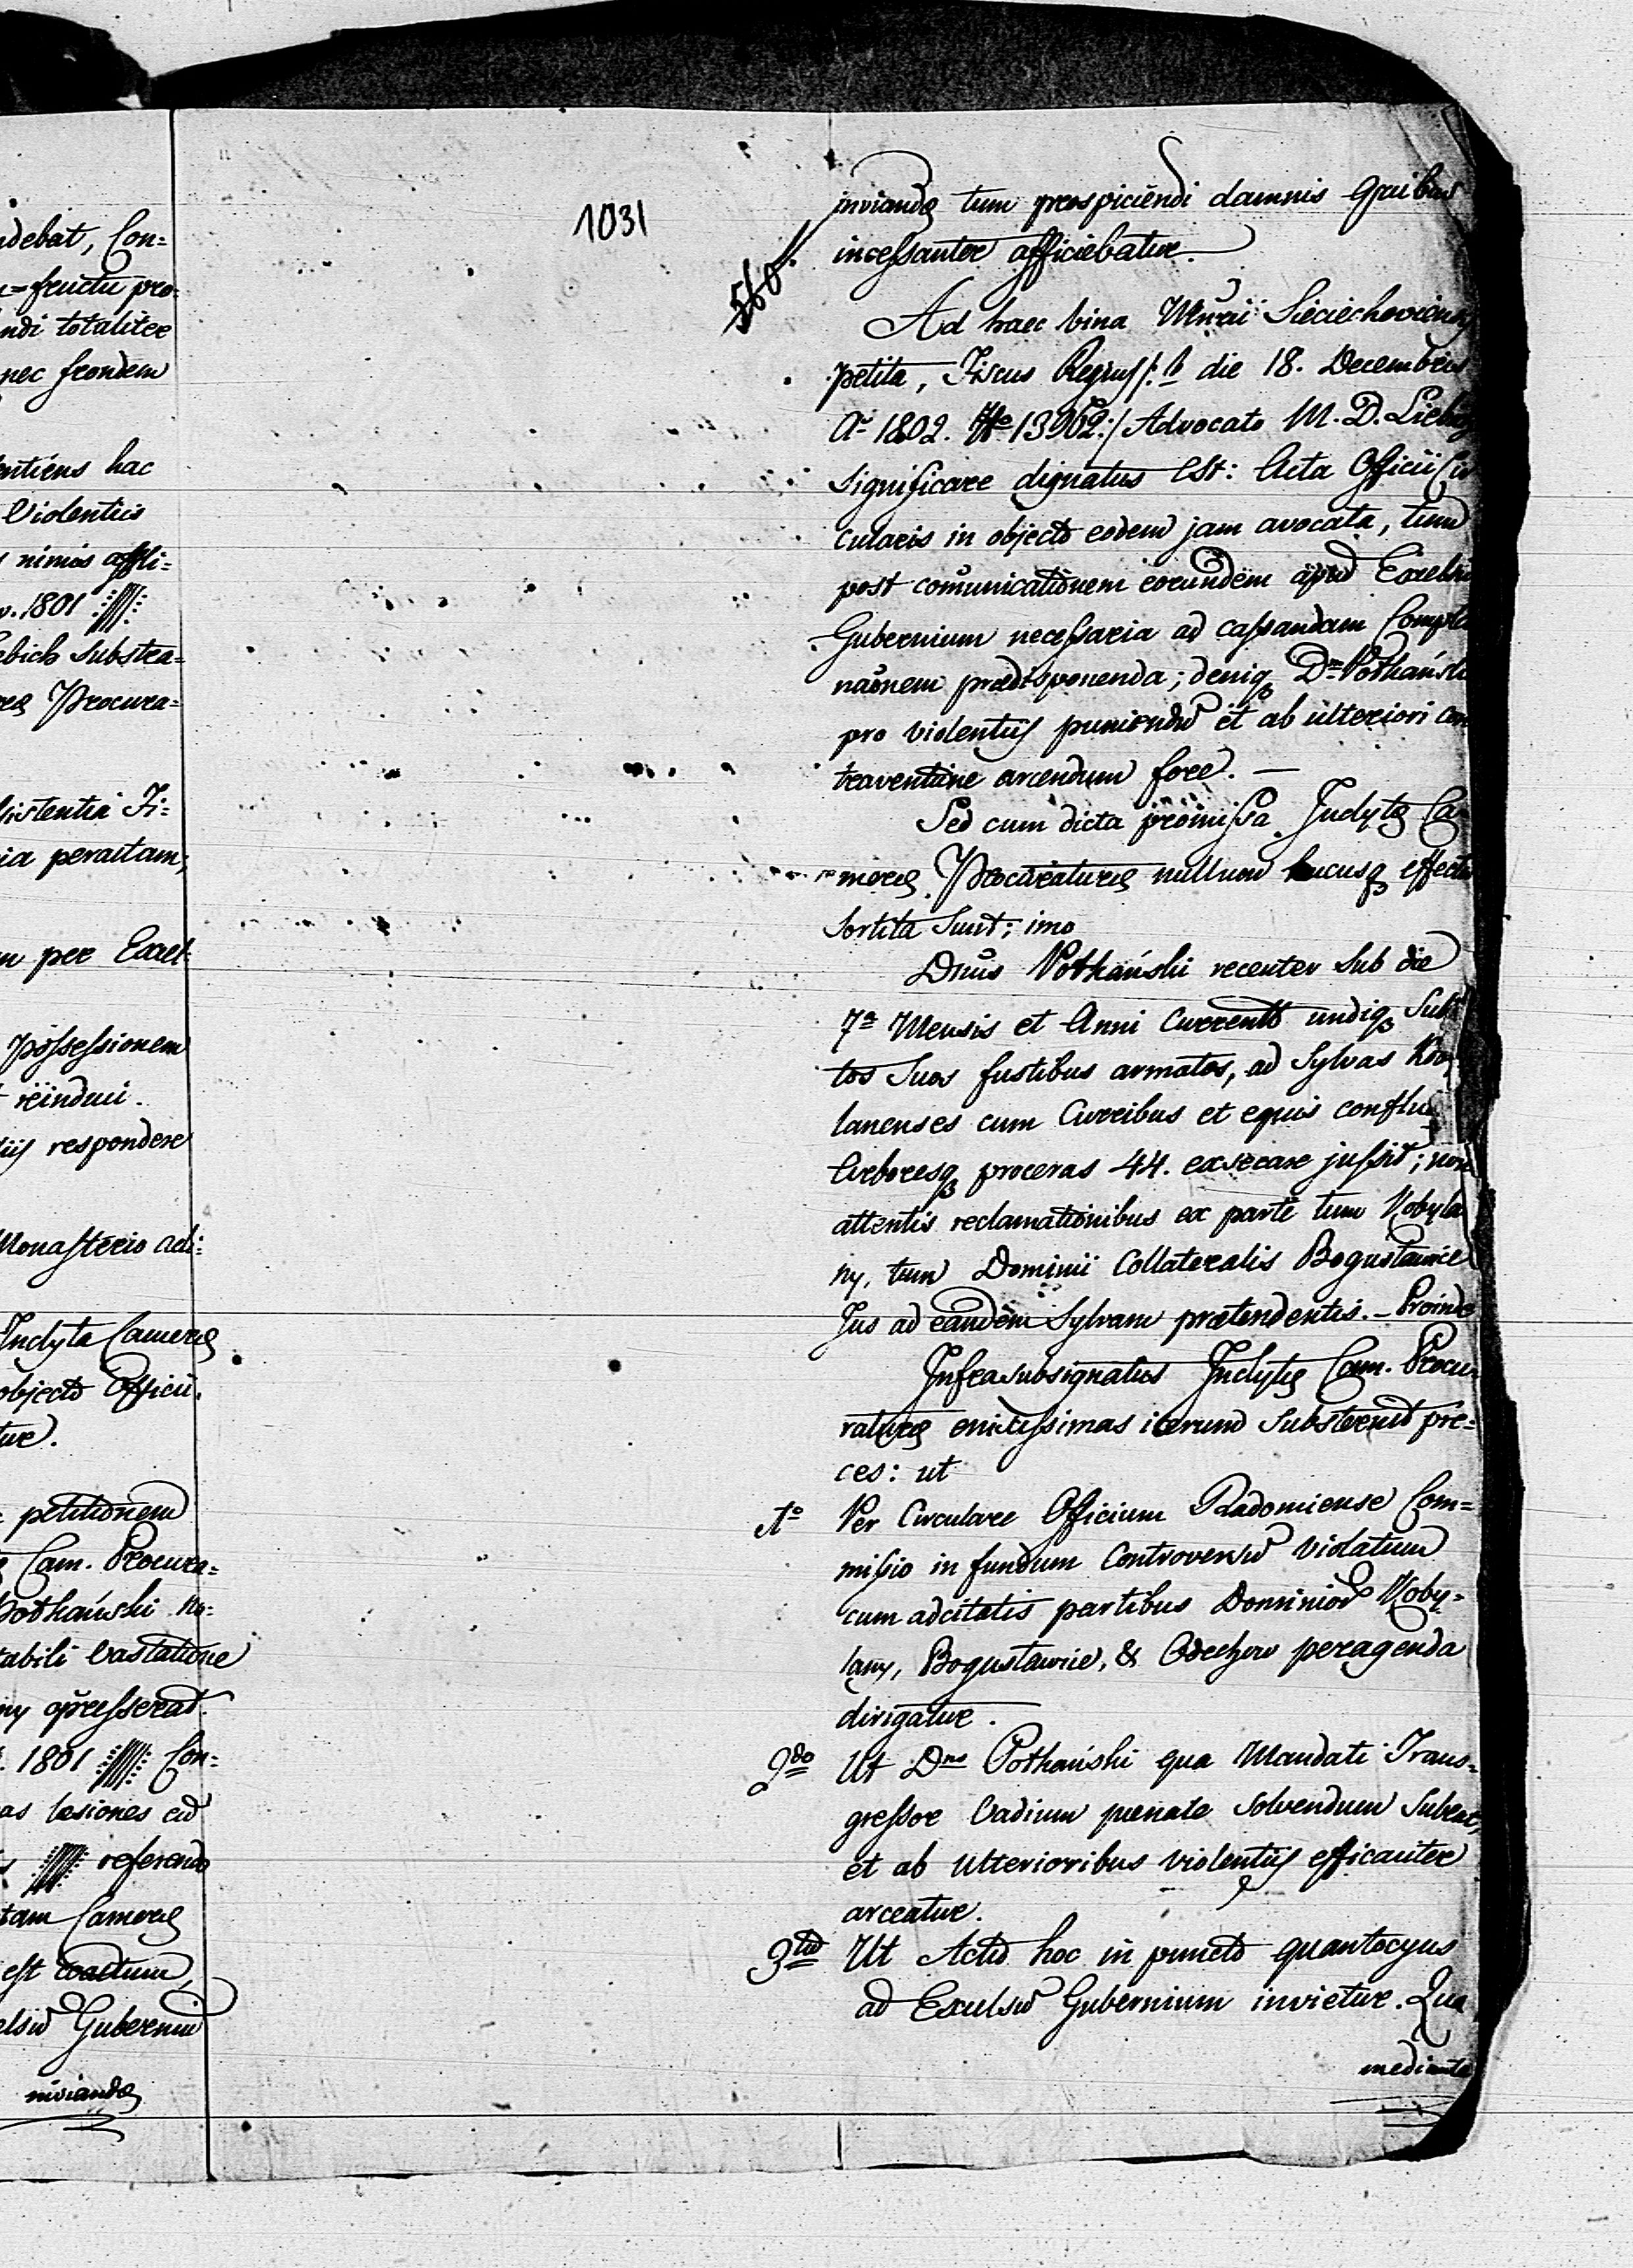 ndebat, Con=
=fructu pro=
ndi totaliter
nec frondem
entiens hac
violentiis
nimis affli=
1801
Liebich substra=
Procura=
sistentia Fi=
peractam;
per Excel
possessionem
reindui.
respondere
Monasterio adi=
Inclyta Camerae
objecto Officii
tur.
petitionem
Cam. Procura=
Pothański
tabili vastatione
oppresserat.
1801 Con=
as lesiones
referendo
tam Camerae
est
Gubernium
invianda
1031
invianda tum prospiciendi damnis quibus
incessanter afficiebatur.
Ad haec bina Mnrii Sieciechovien
petita, Fiscus Regius /: die 18. Decembris
Aº 1802. Nº 13962:/ Advocato M. D. Liebig
significare dignatus est: Acta Officii Cir
cularis in objecto eodem jam avocata, tum
post comunicationem eorundem apud Excelsu
Gubernium necessaria ad cassandam Compla
naõnem praedisponenda; deniq Dnm Pothański
pro violentiis puniendũ et ab ulteriori con
traventione arcendum fore. —
Sed cum dicta promissa Inclytae Ca
merae Procuraturae nullum hucusq effectũ
sortita sunt; imo
Dnũs Pothański recenter sub die
7ª Mensis et Anni Currentis undiq Subdi
tos suos fustibus armatos, ad Sylvas Koby
lanenses cum Curribus et equis
Arboresq proceras 44. exsecare jussit; non
attentis reclamationibus ex parte tum Kobyla
ny, tum Dominii Collateralis Bogusławice
Jus ad eandem Sylvam praetendentis. – Proinde
Infrasubsignatus Inclytae Cam. Procu=
raturae enixissimas iterum substernit pre=
ces: ut
1º Per Circulare Officium Radomiense Com=
missio in fundum Controversũ violatum
cum adcitatis partibus Dominior Koby=
lany, Bogusławice, & Odechow peragenda
dirigatur.
2do Ut Dns Pothański qua Mandati Trans=
gressor Vadium poenale solvendum subeat,
et ab ulterioribus violentiis efficaciter
arceatur.
3tio Ut Acta hoc in puncto quantocyus
ad Excelsũ Gubernium invietur. Qua
mediante